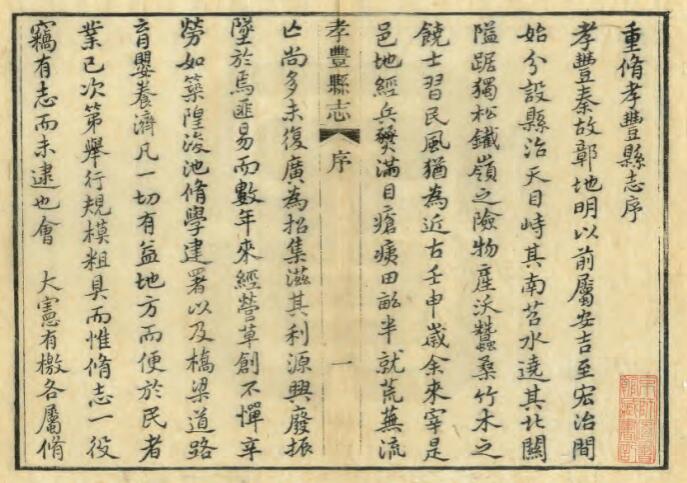 重脩孝豐縣志序
孝豐秦故鄣地明以前屬安吉至宏治間
始分設縣治天目峙其南苕水遶其北關
隘踞獨松鐵嶺之險物產沃蠶桑竹木之
饒士習民風猶為近古壬申歲余來宰是
邑地經兵燹滿目瘡痍田畝半就荒蕪流
孝豐縣志 序 一
亡尚多未復廣為招集滋其利源興廢振
墜於焉匪易而數年來經營草創不憚辛
勞如築隍浚池脩學建署以及橋梁道路
育嬰養濟凡一切有益地方而便於民者
業已次第舉行規模粗具而惟脩志一役
竊有志而未逮也會 大憲有檄各屬脩